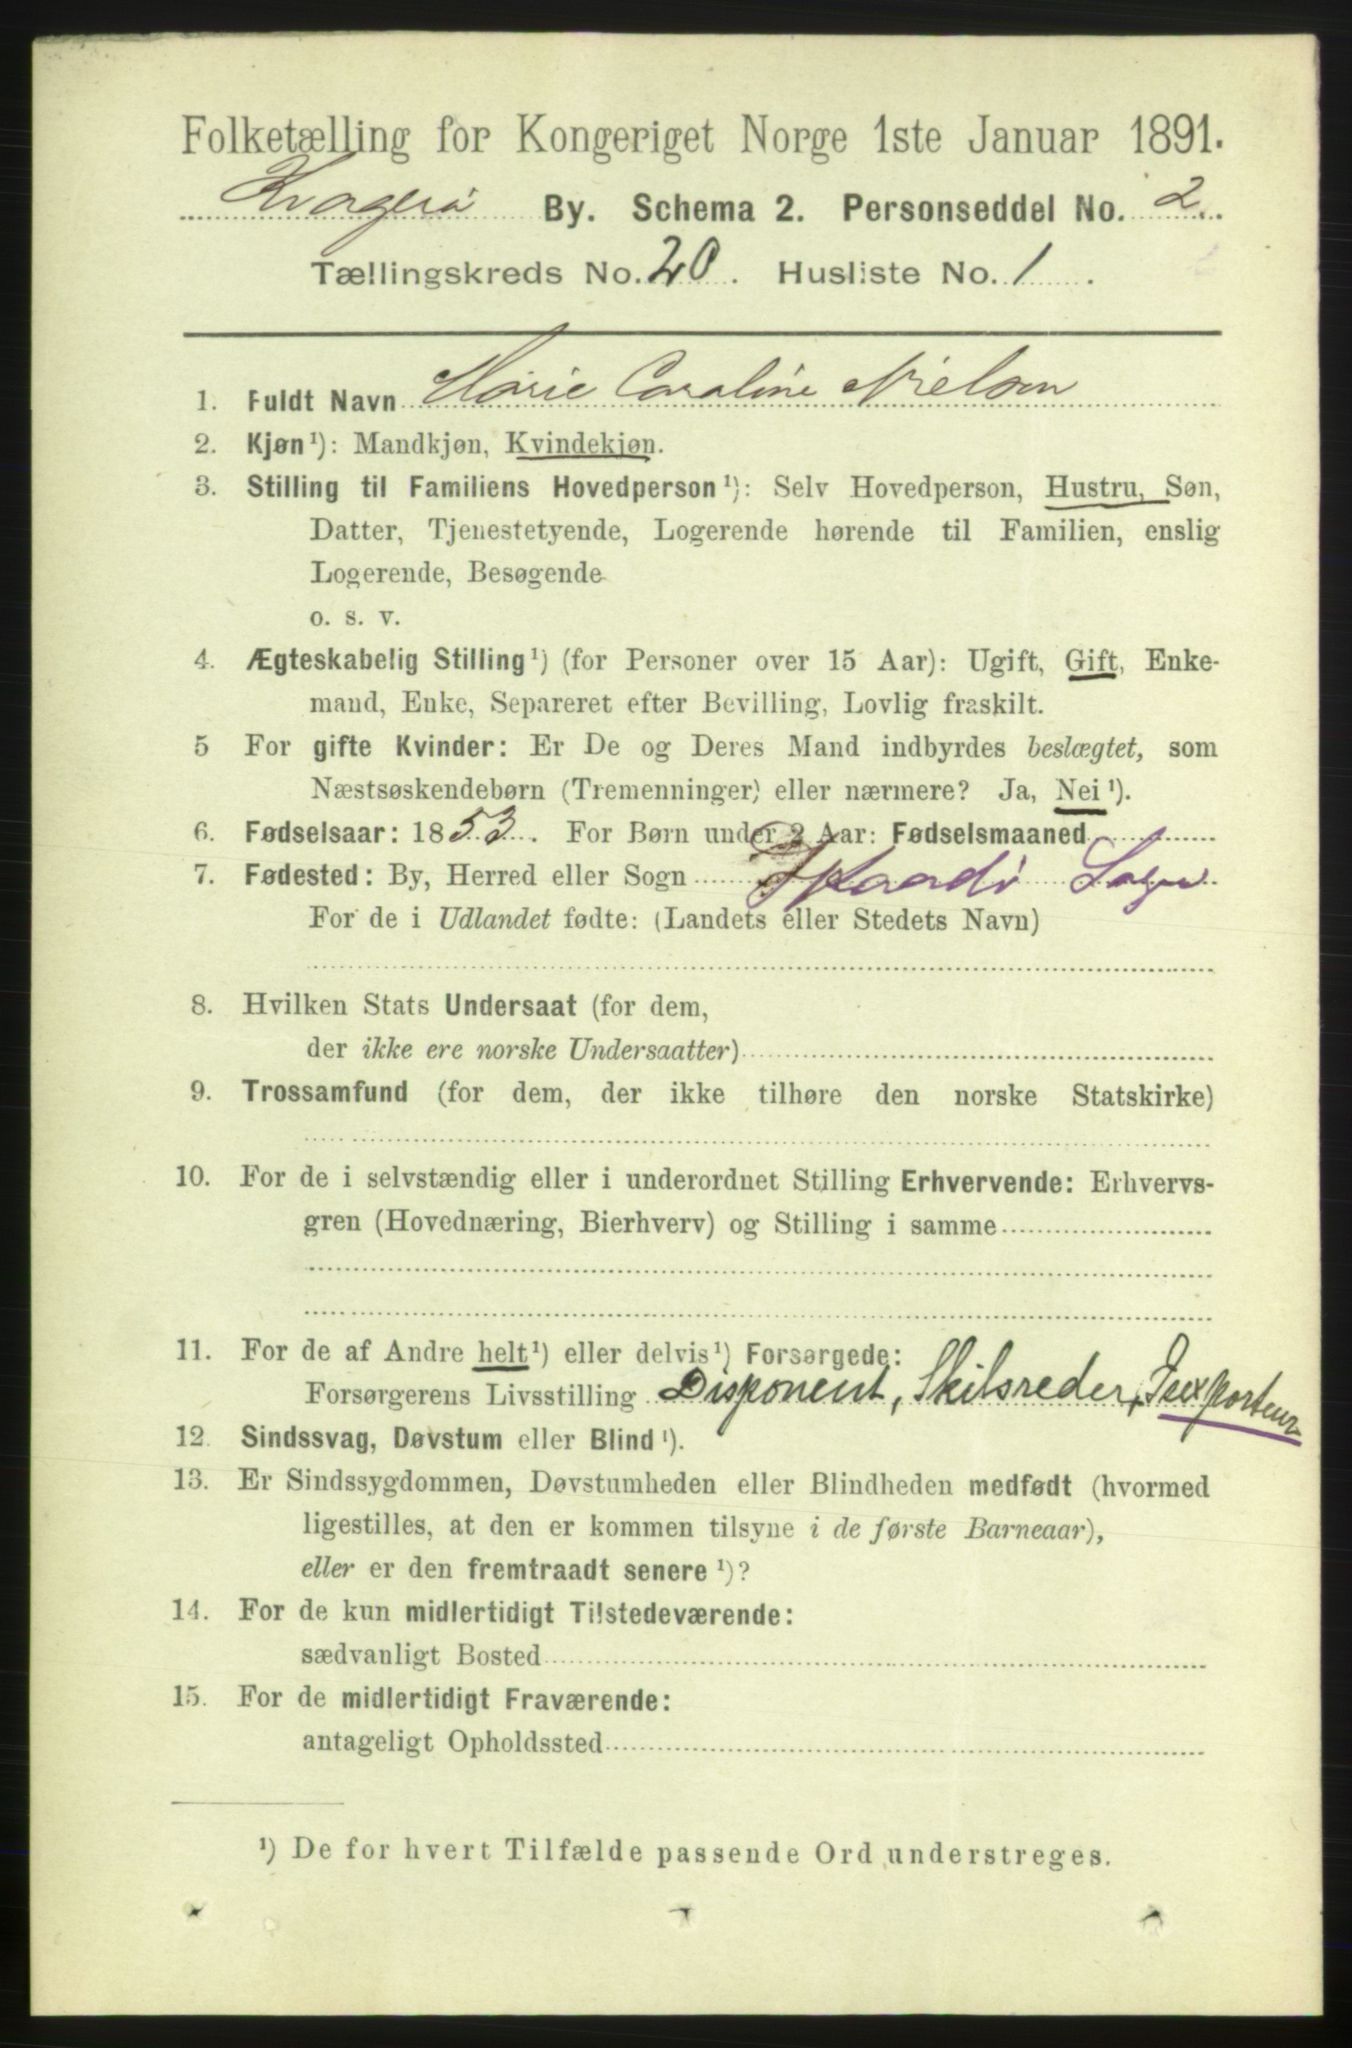 Folketælling for Kongeriget Norge 1ste Januar 1891.
Kragerø By. Schema 2. Personseddel No. 2.
Tællingskreds No. 20. Husliste No. 1.
1. Fuldt Navn Marie Caroline Nielsen
2. Kjøn¹): Mandkjøn, Kvindekjøn.
3. Stilling til Familiens Hovedperson¹): Selv Hovedperson, Hustru, Søn,
Datter, Tjenestetyende, Logerende hørende til Familien, enslig
Logerende, Besøgende
o. s. v.
4. Ægteskabelig Stilling¹) (for Personer over 15 Aar): Ugift, Gift, Enke-
mand, Enke, Separeret efter Bevilling, Lovlig fraskilt.
5 For gifte Kvinder: Er De og Deres Mand indbyrdes beslægtet, som
Næstsøskendebørn (Tremenninger) eller nærmere? Ja, Nei¹).
6. Fødselsaar: 1853. For Børn under 2 Aar: Fødselsmaaned
7. Fødested: By, Herred eller Sogn Skaadø Sogn
For de i Udlandet fødte: (Landets eller Stedets Navn)
8. Hvilken Stats Undersaat (for dem,
der ikke ere norske Undersaatter)
9. Trossamfund (for dem, der ikke tilhøre den norske Statskirke)
10. For de i selvstændig eller i underordnet Stilling Erhvervende: Erhvervs-
gren (Hovednæring, Bierhverv) og Stilling i samme
11. For de af Andre helt¹) eller delvis¹) Forsørgede:
Forsørgerens Livsstilling Disponent, Skibsreder, + Isexporteur
12. Sindssvag, Døvstum eller Blind¹).
13. Er Sindssygdommen, Døvstumheden eller Blindheden medfødt (hvormed
ligestilles, at den er kommen tilsyne i de første Barneaar),
eller er den fremtraadt senere¹)?
14. For de kun midlertidigt Tilstedeværende:
sædvanligt Bosted
15. For de midlertidigt Fraværende:
antageligt Opholdssted
¹) De for hvert Tilfælde passende Ord understreges.